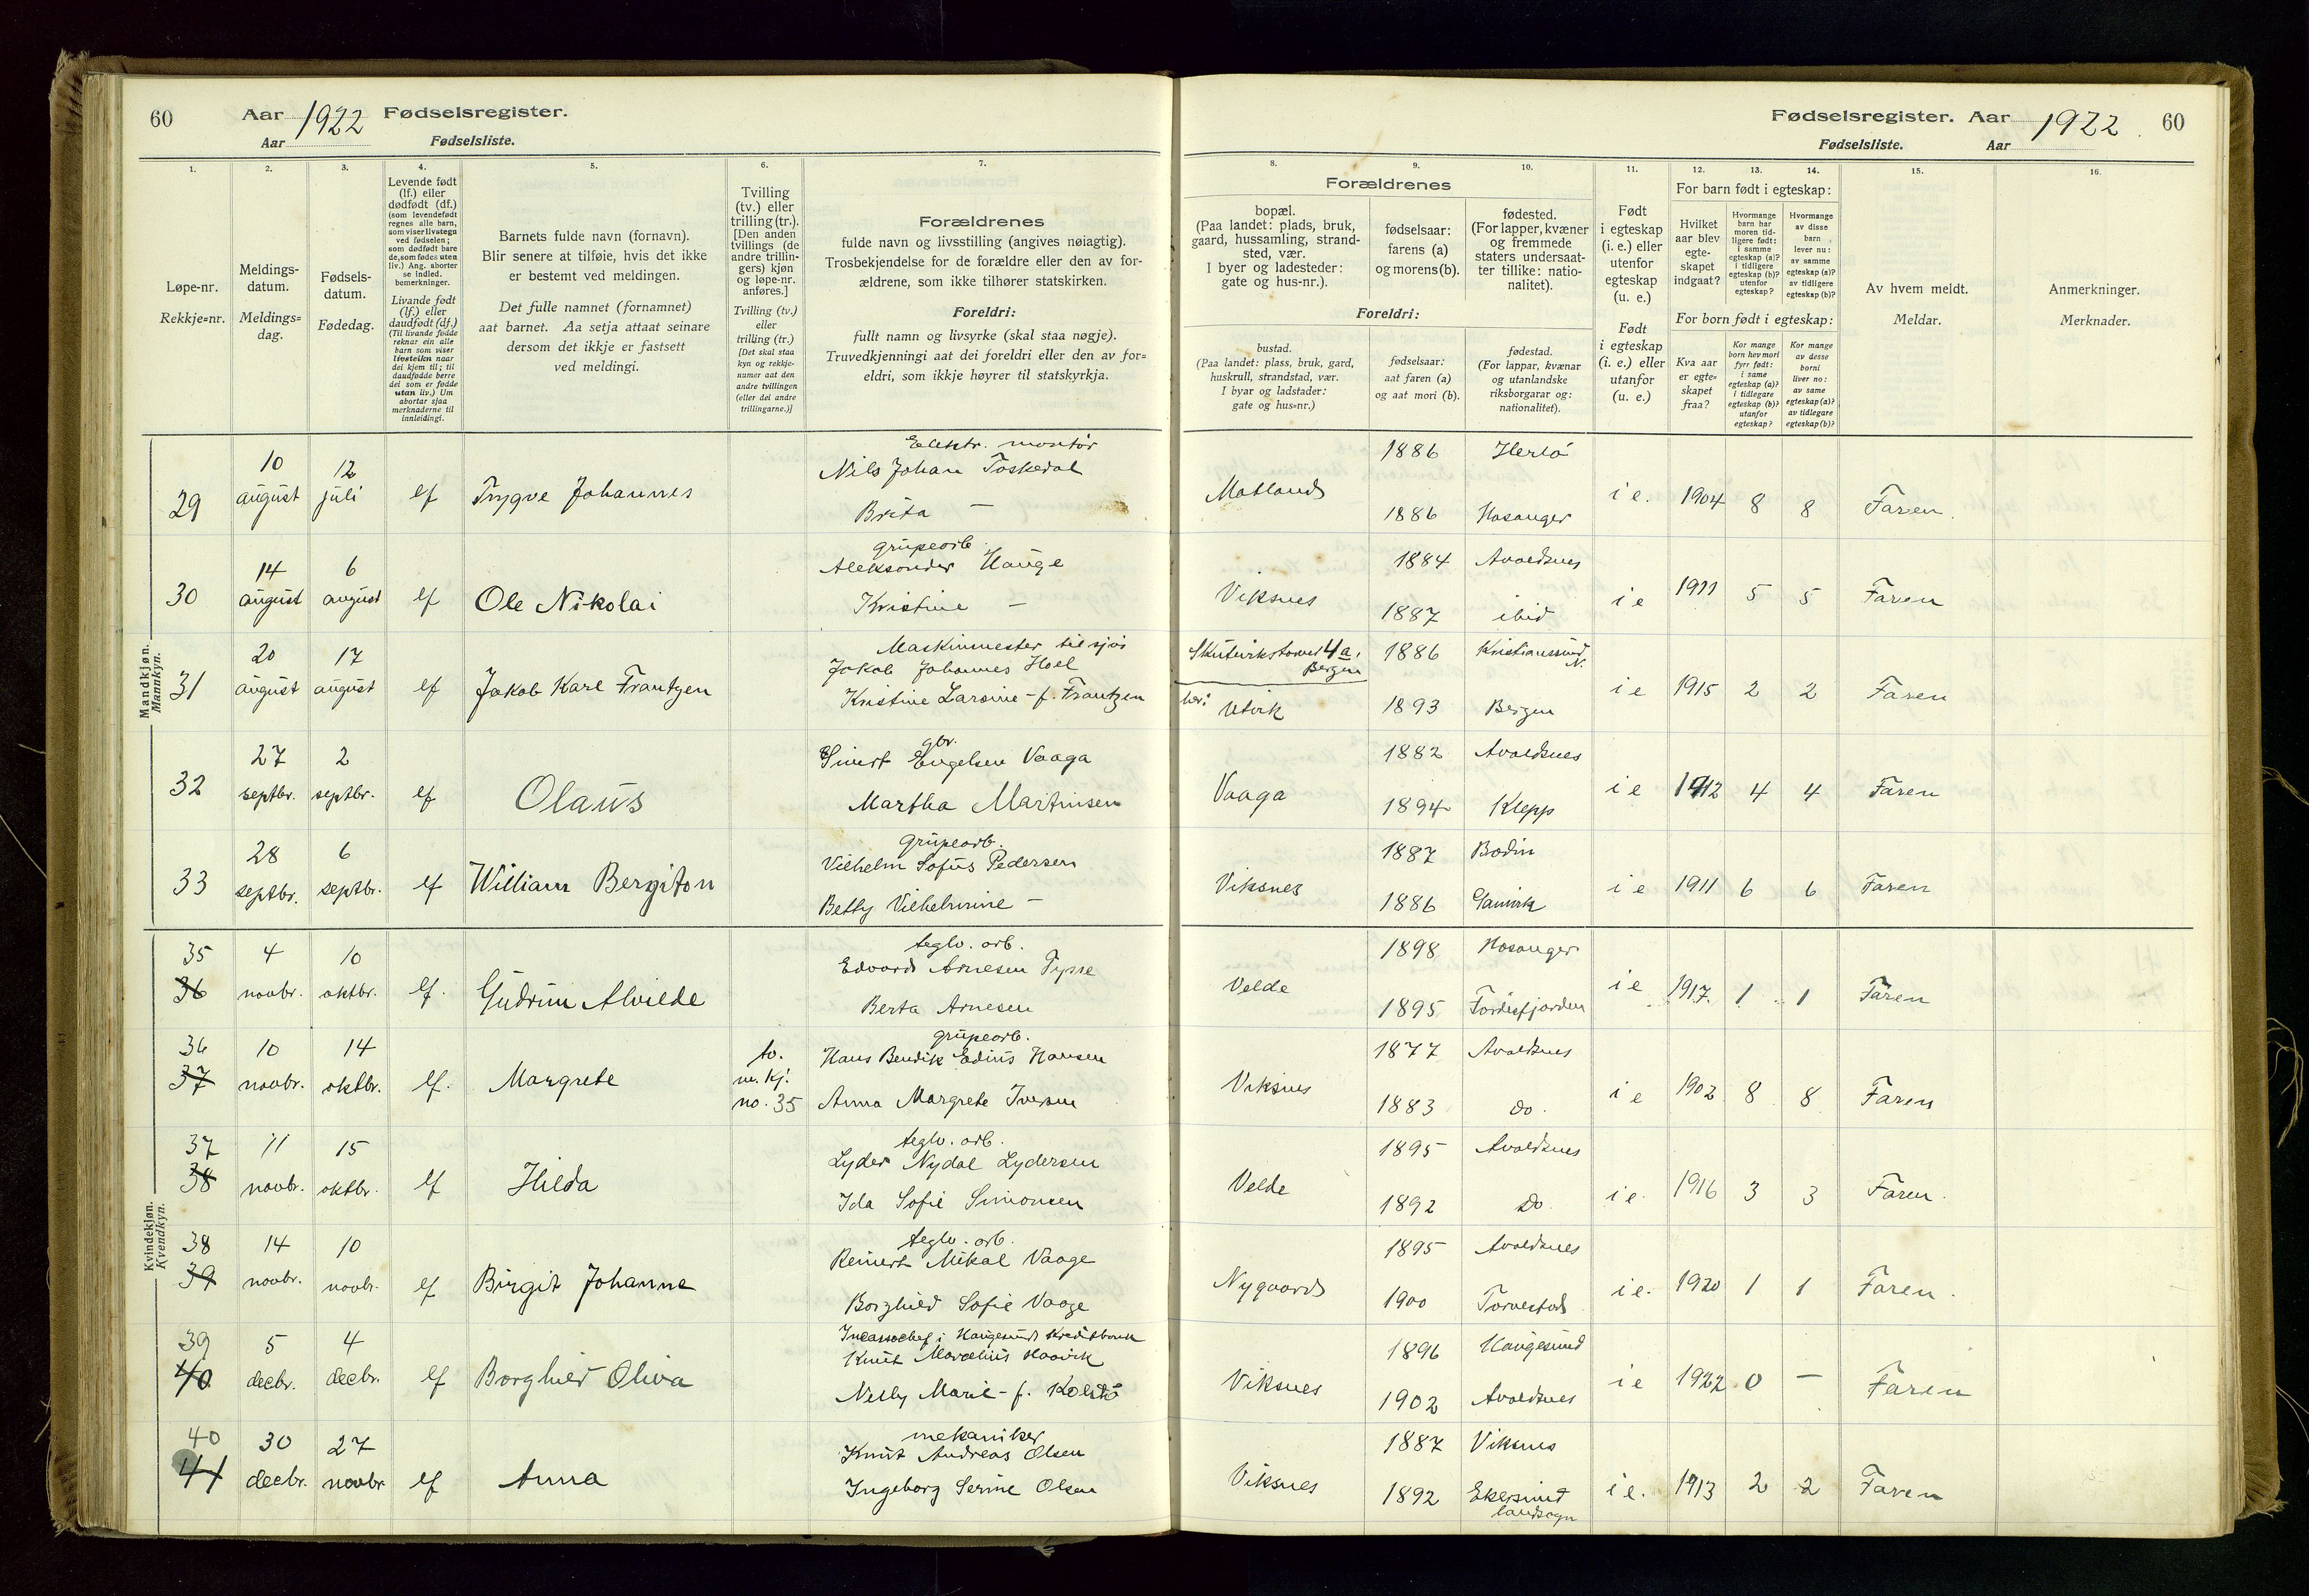 60 Aar 1922 Fødselsregister.
Aar Fødselsliste.
Fødselsregister. Aar 1922 60
Fødselsliste. Aar
1. 2. 3. 4. 5. 6. 7.
8. 9. 10. 11. 12. 13. 14. 15. 16.
Løpe-nr.
Rekkje=nr.
Meldings-
datum.
Meldings=
dag.
Fødsels-
datum.
Fødedag.
Levende født
(lf.) eller
dødfødt (df.)
(som levendefødt
regnes alle barn,
som viser livstegn
ved fødselen;
som dødfødt bare
de, som fødes uten
liv.) Ang. aborter
se indled.
bemerkninger.
Livande født
(lf.) eller
daudfødt (df.)
(Til livande fødde
reknar ein alle
barn som viser
livsteikn naar
dei kjem til; til
daudfødde berre
dei som er fødde
utan liv.) Um
abortar sjaa
merknaderne til
innleidingi.
Barnets fulde navn (fornavn).
Blir senere at tilføie, hvis det ikke
er bestemt ved meldingen.
Det fulle namnet (fornamnet)
aat barnet. Aa setja attaat seinare
dersom det ikkje er fastsett
ved meldingi.
Tvilling
(tv.) eller
trilling (tr.).
[Den anden
tvillings (de
andre trillin-
gers) kjøn
og løpe-nr.
anføres.]
Tvilling (tv.)
eller
trilling (tr.)
[Det skal staa
kyn og rekkje-
numer aat den
andre tvillingen
(eller dei andre
trillingarne.)]
Forældrenes
fulde navn og livsstilling (angives nøiagtig).
Trosbekjendelse for de forældre eller den av for-
ældrene, som ikke tilhører statskirken.
Foreldri:
fullt namn og livsyrke (skal staa nøgje).
Truvedkjenningi aat dei foreldri eller den av for=
eldri, som ikkje høyrer til statskyrkja.
Forældrenes
bopæl.
(Paa landet: plads, bruk,
gaard, hussamling, strand-
sted, vær.
I byer og ladesteder:
gate og hus-nr.).
fødselsaar:
farens (a)
og morens (b).
fødested.
(For lapper, kvæner
og fremmede
staters undersaat-
ter tillike: natio-
nalitet).
Foreldri:
bustad.
(Paa landet: plass, bruk, gard,
huskrull, strandstad, vær.
I byar og ladstader:
gate og hus=nr.)
fødselsaar:
aat faren (a)
og aat mori (b).
fødestad.
(For lappar, kvænar
og utanlandske
riksborgarar og:
nationalitet).
Født
i egteskap
(i. e.) eller
utenfor
egteskap
(u. e.)
Født
i egteskap
(i. e.) eller
utanfor
(u. e.)
For barn født i egteskap:
Hvilket
aar blev
egte-
skapet
indgaat?
Hvormange
barn har
moren tid-
ligere født:
i samme
egteskap (a)?
i tidligere
egteskap (b)?
utenfor
egteskap?
Hvormange
av disse
barn
lever nu:
av samme
egteskap (a)?
av tidligere
egteskap (b)?
For born født i egteskap:
Kva aar
er egte=
skapet
fraa?
Kor mange
born hev mori
fyrr født:
i same
egteskap (a)?
i tidlegare
egteskap (b)?
utanfor
egteskap?
Kor mange
av desse
borni
liver no:
av same
egteskap (a)?
av tidlegare
egteskap (b)?
Av hvem meldt.
Meldar.
Anmerkninger.
Merknader.
Mandkjøn.
Mannkyn.
29 10 august 12 juli lf Trygve Johannes
Elektr. montør
Nils Johan Toskedal
Brita —
Matlands 1886 Herlö
1886 Hosanger
i e. 1904 8 8 Faren.
30 14 august 6 august lf Ole Nikolai
grubearb.
Aleksander Hauge
Kristine —
Viksnes 1884 Avaldsnes
1887 ibid
i e 1911 5 5 Faren
31 20 august 17 august lf Jakob Karl Frantzen
Maskinmester tilsjøs
Jakob Johannes Hoel
Kristine Larsine – f. Frantzen
Skutevikstorvet 4a, Bergen
her: Utvik
1886 Kristianssund N.
1893 Bergen
i e 1915 2 2 Faren
32 27 septbr. 2 septbr. lf Olaus
gbr.
Sivert Engelsen Vaaga
Martha Martinsen
Vaaga 1882 Avaldsnes
1894 Klepp
i e 1912 4 4 Faren
33 28 septbr. 6 septbr. lf William Bergiton
Grubearb.
Vilhelm Sofus Pedersen
Betty Vilhelmine —
Viksnes 1887 Bodin
1886 Gamvik
i e 1911 6 6 Faren
Kvindekjøn.
Kvendkyn.
35 36 4 novbr. 10 oktbr. lf. Gudrun Alvilde
teglv. arb.
Edvard Arnesen Tysse
Berta Arnesen
Velde 1898 Hosanger
1895 Førdesfjorden
i e 1917. 1 1 Faren
36 37 10 novbr. 14 oktbr. lf. Margrete
tv.
m. kj.
no. 35
grubearb.
Hans Bendik Edius Hansen
Anna Margrete Iversen
Viksnes 1877 Avaldsnes
1883 do.
i e 1902 8 8 Faren
37 38 11 novbr. 15 oktbr. lf Hilda
teglv. arb.
Lyder Nydal Lydersen
Ida Sofie Simonsen
Velde 1895 Avaldsnes
1892 do
i e. 1916 3 3 Faren.
38 39 14 novbr. 10 novbr. lf Birgit Johanne
teglv. arb.
Reinert Mikal Vaage
Borghild Sofie Vaage
Nygaards 1895 Avaldsnes
1900 Torvestad
i e. 1920 1 1 Faren.
39 40 5 decbr. 4 decbr. lf Borghild Oliva
Incassochef i Haugesunds Kreditbank
Knut Marcelius Haavik
Nelly Marie – f. Kolstö
Viksnes 1896 Haugesund
1902 Avaldsnes
i e 1922 0 — Faren
40 41 30 decbr. 27 novbr lf Anna
mekaniker
Knut Andreas Olsen
Ingeborg Serine Olsen
Viksnes 1887 Viksnes
1892 Ekersund landsogn
i e. 1913 2 2 Faren